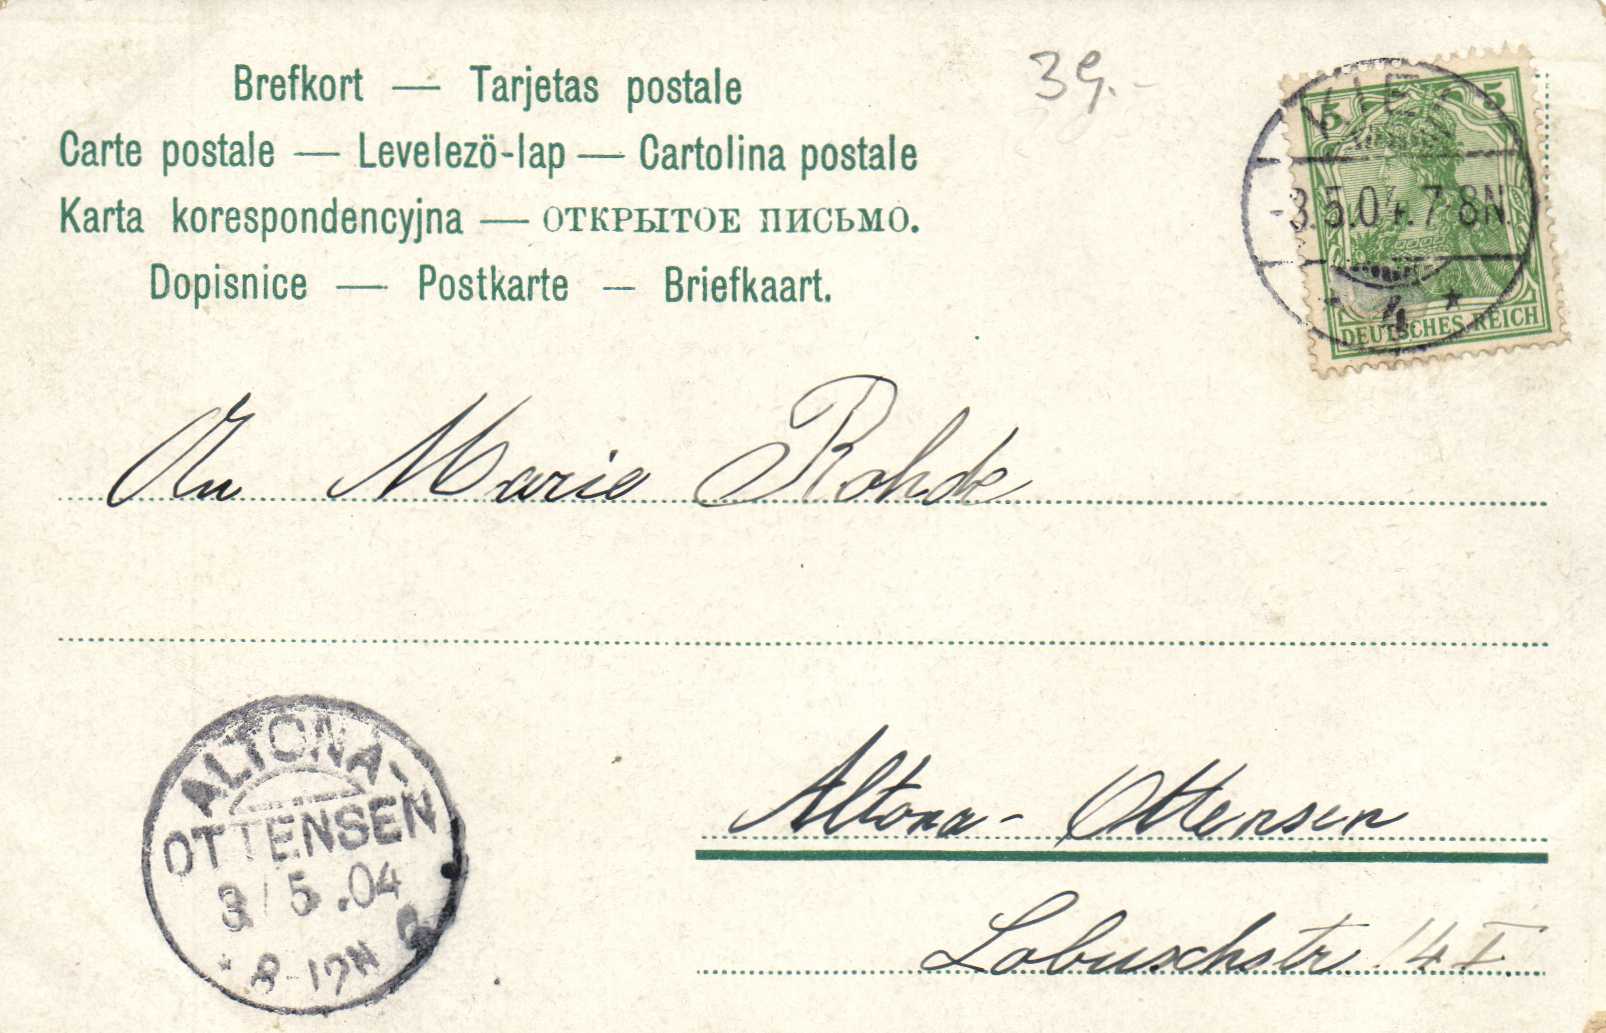 Brefkort — Tarjetas postale
Carte postale — Levelezö-lap — Cartolina postale
Karta korespondencyjna — ОТКРЫТОЕ ПИСЬМО.
Dopisnice — Postkarte — Briefkaart.
39.-
5 5
-3.5.04.7-8N.
* 4 *
DEUTSCHES REICH
An Marie Rohde
ALTONA-
OTTENSEN
3/5.04
Altona-Ottensen
Lobuschstr. 14 I.